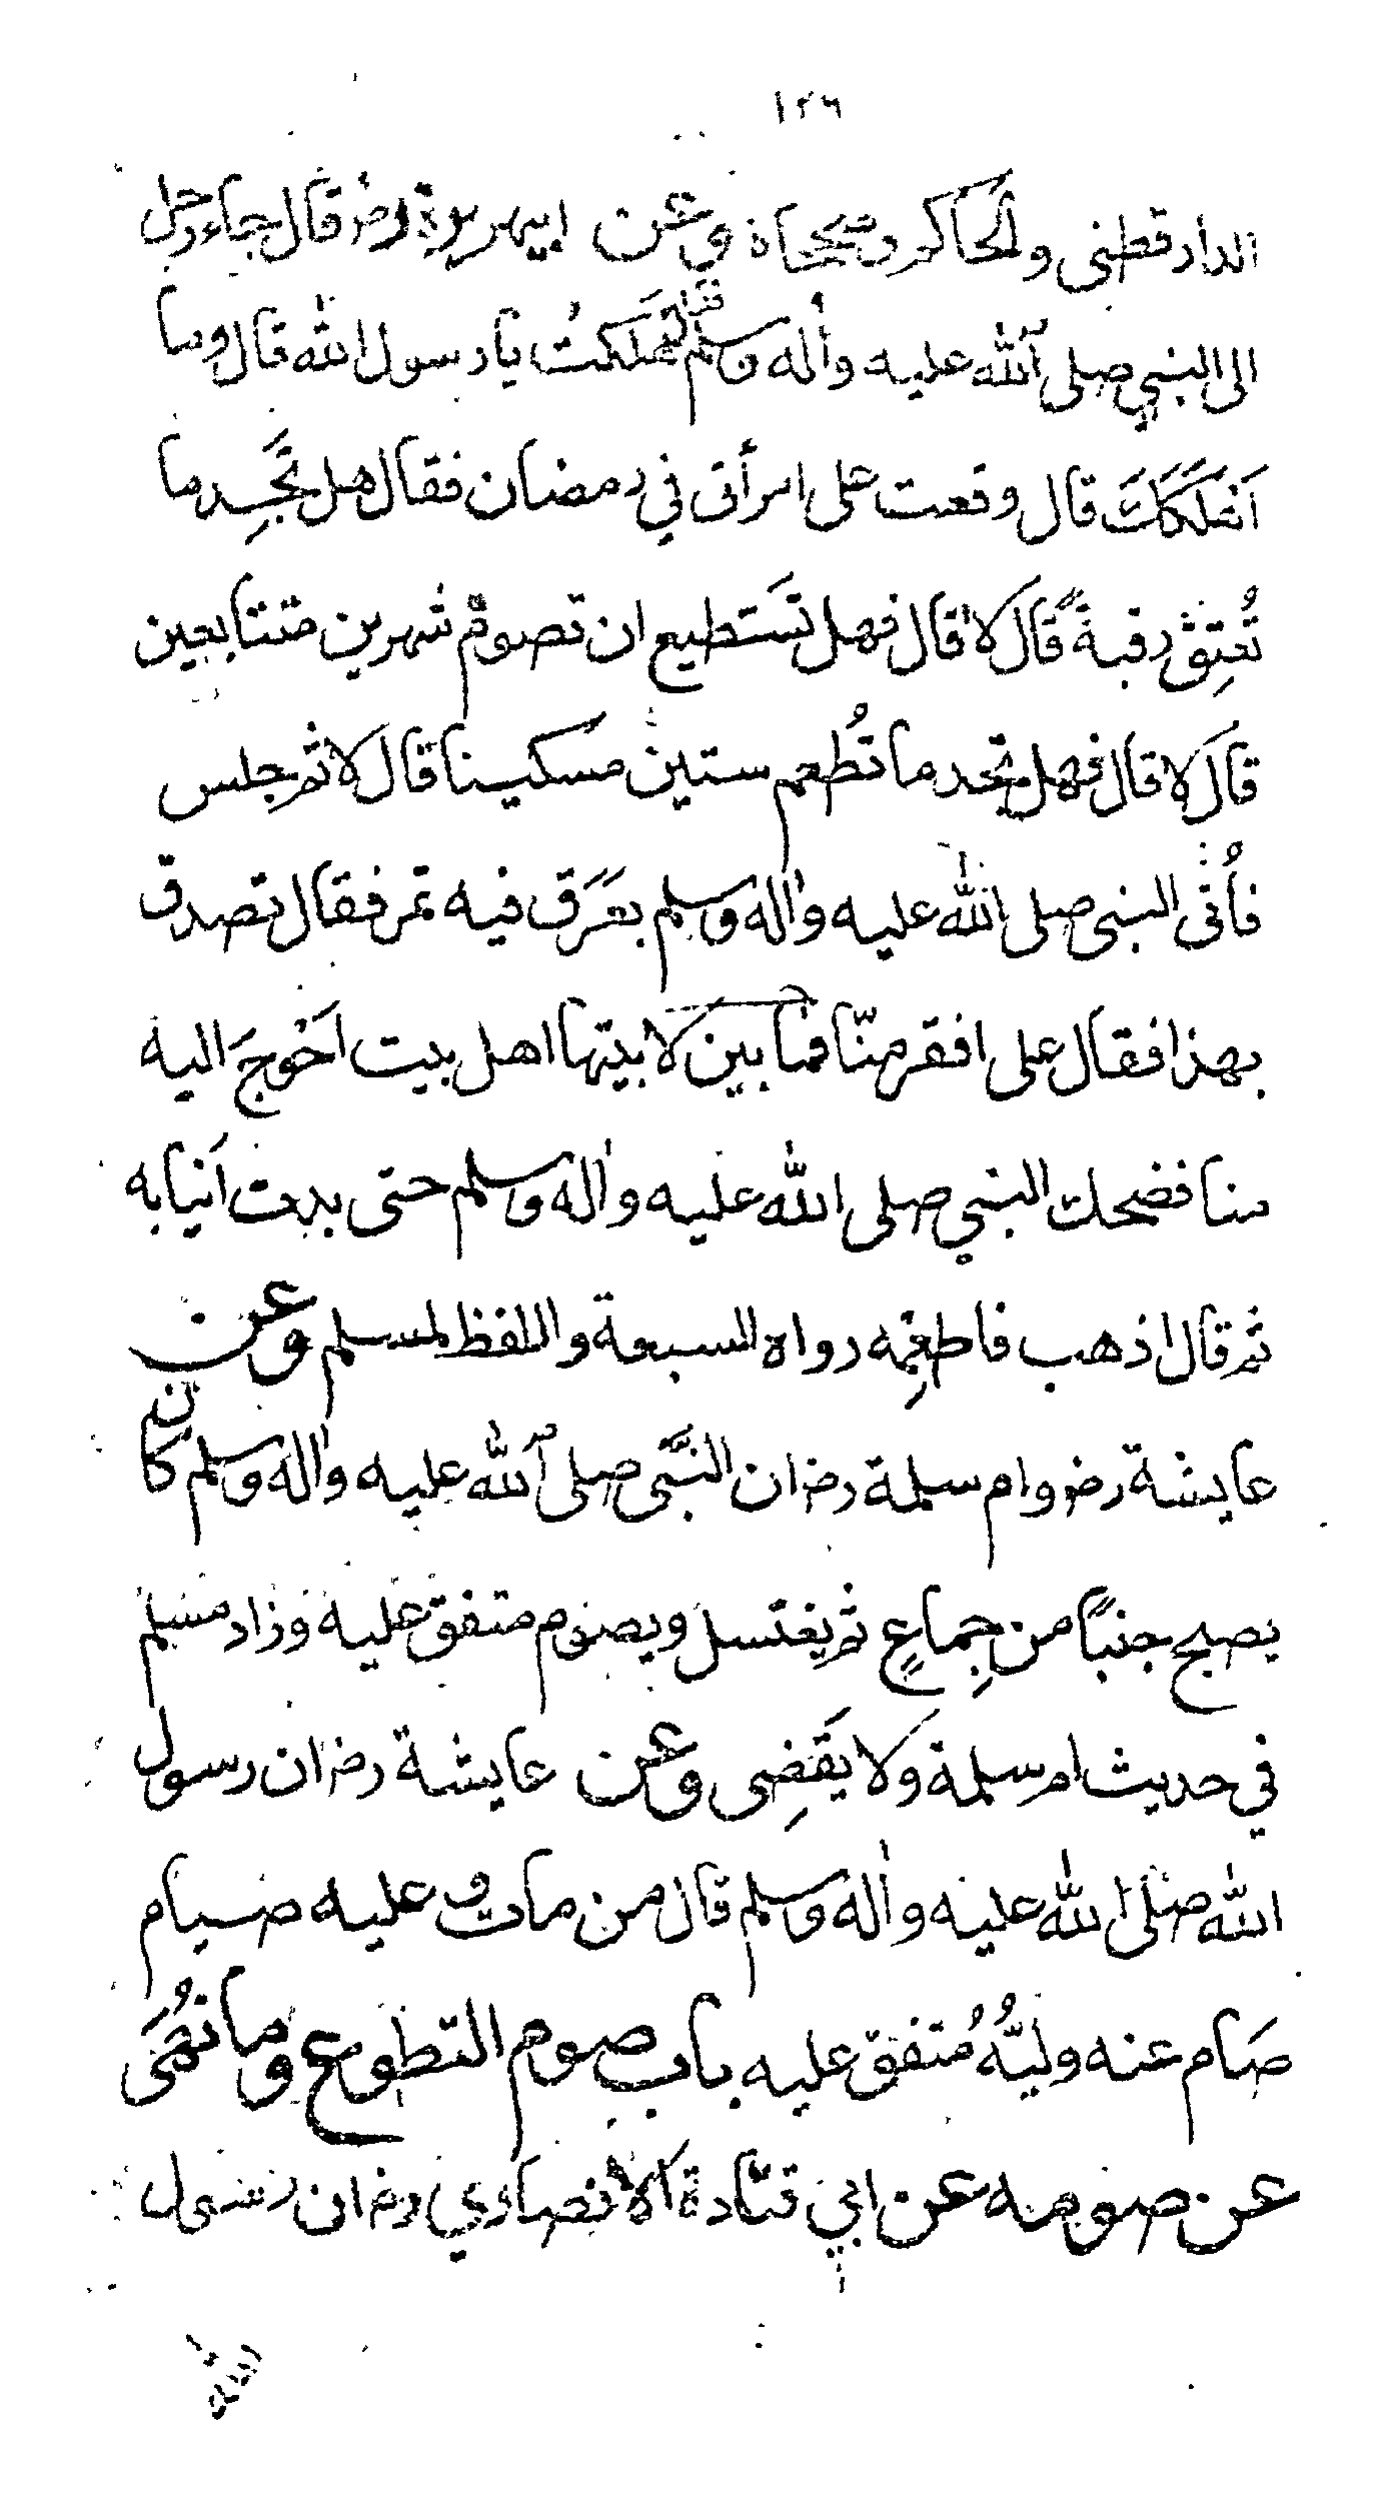 ١٢٦
الدارقطنى والحاكم وصححاه وعن ابيهريرة رضر قال جاء رجل
الى النبي صلى الله عليه وأله وسلم فقال هَلَكتُ يا رسول الله قال وما
اَهْلَكَكَ قال وقعت على امرأتى في رمضان فقال هل تَجِد ما
تُعتِق رقبةً قال لا قال فهل تَستطيع ان تصوم شهرين متتابعين
قال لا قال فهل تجد ما تُطعم ستين مسكينا قال لا ثم جلس
فاُتى النبى صلى الله عليه واله وسلم بعَرَق فيه تمر فقال تصدق
بهذا فقال على افقر منّا فما بين لابيتها اهل بيت اَحْوجَ اليه
منا فضحك النبي صلى الله عليه واله وسلم حتى بدت اَنيابه
ثم قال اذهب فاطعِمه رواه السبعة واللفظ لمسلم وعن
عايشة رضر وام سلمة رضر ان النَّبى صلى الله عليه واله وسلم كان
يصبح جنباً من جِماعٍ ثم يغتسل ويصوم متفق عليه وزاد مسلم
في حديث ام سلمة ولا يَقضِى وعن عايشة رضر ان رسول
الله صلى الله عليه واله وسلم قال من مات وعليه صيام
صَام عنه وليُّهُ مُتفق عليه باب صوم التطوع وما نُهَىَ
عن صومه عن ابي قتادة الانصاري رضر ان رسول
الله